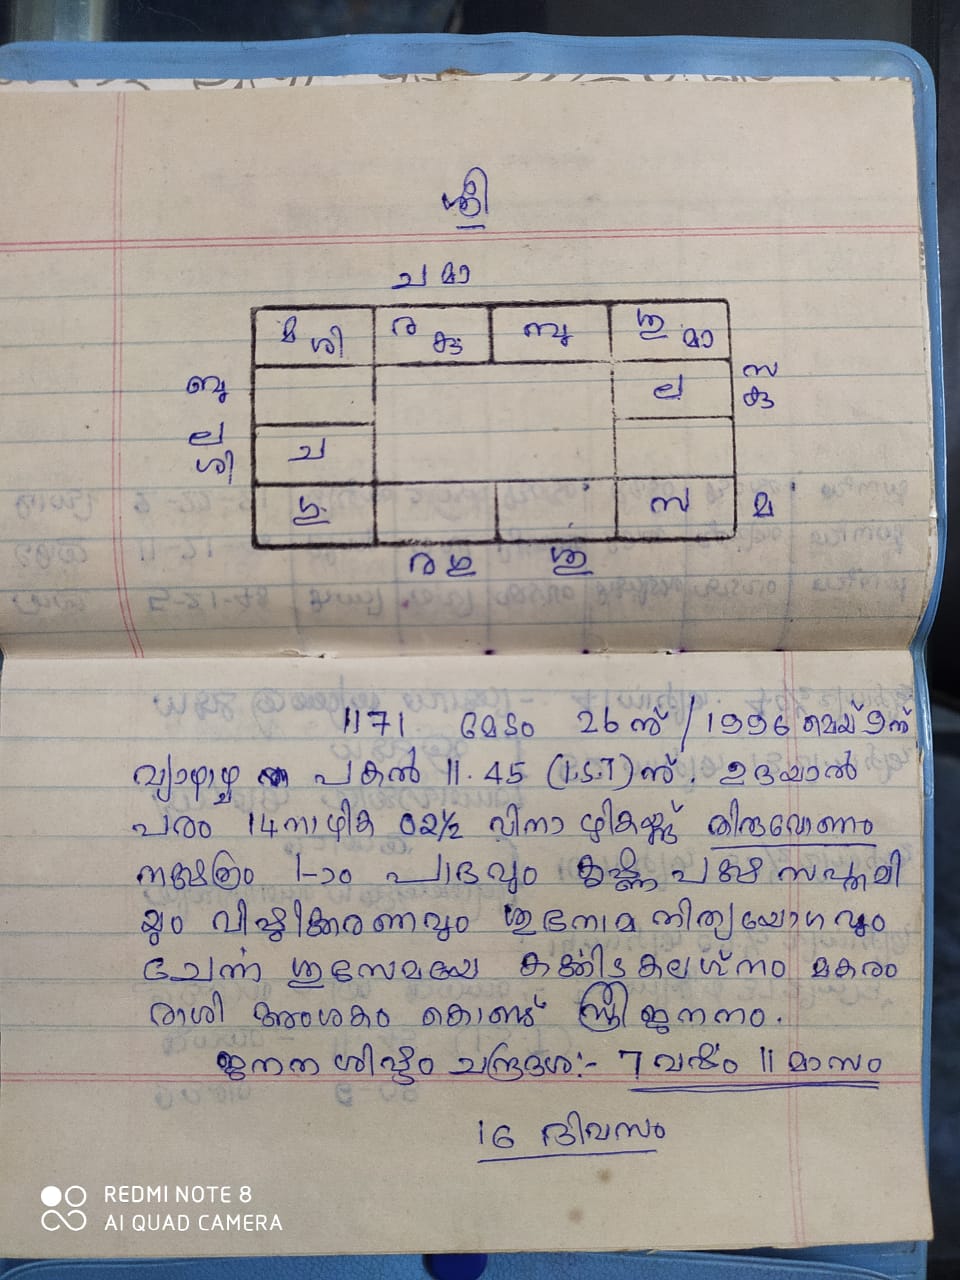 ശ്രീ
ച മാ
മ ശി ര കു ബു ശു മാ
ബു ല സ കു
ല ശി ച
ഗു സ മ
ര ഗു ശു
1171 മേടം 26 ന് / 1996 മെയ് 9 ന്
വ്യാഴാഴ്ച പകൽ 11.45 (I.S.T) ന്. ഉദയാൽ
പരം 14 നാഴിക 02½ വിനാഴികയ്ക്ക് തിരുവോണം
നക്ഷത്രം 1-ാം പാദവും കൃഷ്ണപക്ഷ സപ്തമി
യും വിഷ്ടിക്കരണവും ശുഭനാമ നിത്യയോഗവും
ചേർന്ന ശുഭസമയേ കർക്കിടകലഗ്നം മകരം
രാശി അംശകം കൊണ്ട് സ്ത്രീജനനം.
ജനന ശിഷ്ടം ചന്ദ്രദശ:- 7 വർഷം 11 മാസം
16 ദിവസം
REDMI NOTE 8
AI QUAD CAMERA